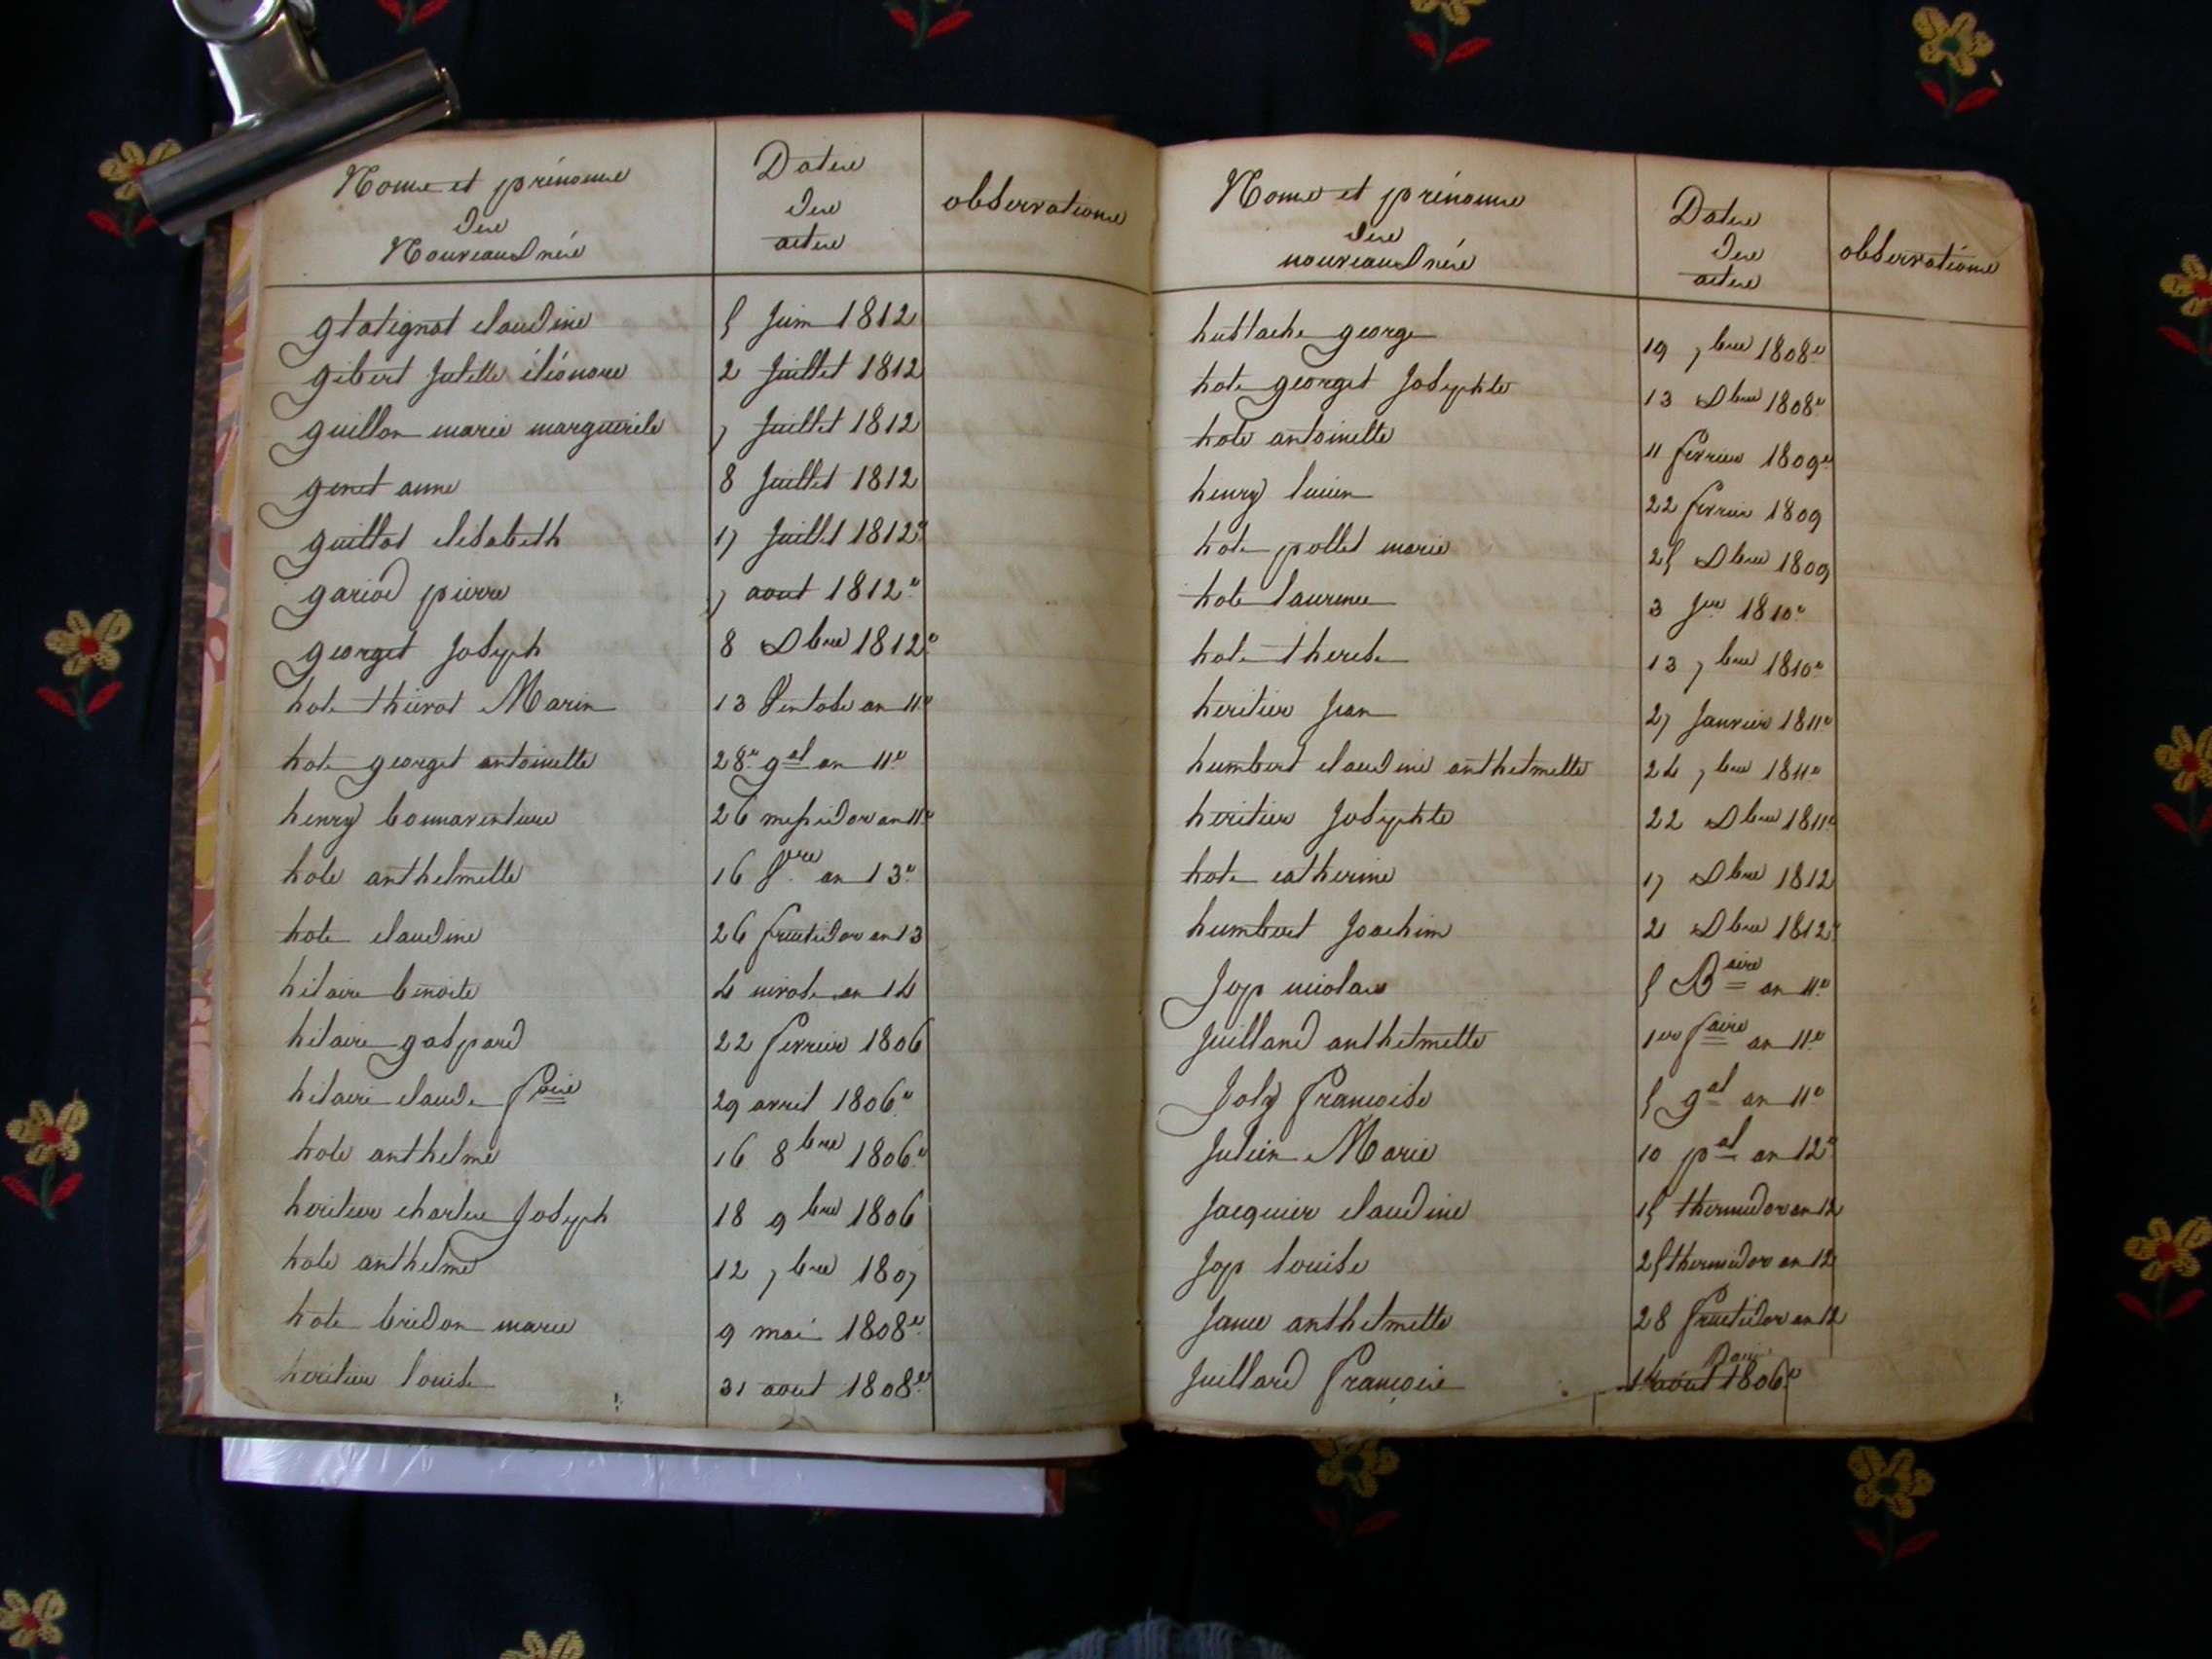 Noms et prénoms
des
Nouveaux nés
Dates
des
actes
observations
glatignat claudine 5 Juin 1812
gibert Julille éléonore 2 Juillet 1812
guillon marie marguerite 7 Juillet 1812
genet anne 8 Juillet 1812
guillot elisabeth 17 Juillet 1812
gariod pierre 7 aout 1812e
georget Joseph 8 Xbre 1812e
hote thievot Marin 13 Ventose an 11e
hote georget antoinette 28e gal an 11e
henry bonnaventure 26 messidor an 11e
hote anthelmette 16 an 13e
hote claudine 26 fructidor an 13
hilaire benoite 4 nivose an 14
hilaire gaspard 22 fevrier 1806
hilaire claude 29 avril 1806e
hote anthelme 16 8bre 1806e
heritier charles Joseph 18 9bre 1806
hote anthelme 12 7bre 1807
hote bridon marie 9 mai 1808e
heritier louise 31 aout 1808e
Noms et prénoms
des
nouveaux nés
Dates
des
actes
observations
hustache george 19 7bre 1808e
hote georget Josephte 13 Xbre 1808e
hote antoinette 11 fevrier 1809e
henry lucien 22 fevrier 1809
hote pollet marie 25 Xbre 1809
hote laurence 3 Jer 1810e
hote therese 13 7bre 1810e
heritier Jean 27 Janvier 1811e
humbert claudine anthelmette 24 7bre 1811e
heritier Josephte 22 Xbre 1811e
hote catherine 17 Xbre 1812
humbert Joachim 21 Xbre 1812e
Jop nicolas 5 Baire an 11e
Juilland anthelmette 1er faire an 11e
Joly françoise 5 gal an 11e
Julien Marie 10 pal an 12e
Jacquier claudine 15 thermidor an 12
Jop louise 25 thermidor an 12
Jance anthelmette 28 fructidor an 12
Juillard françoise aout 1806e